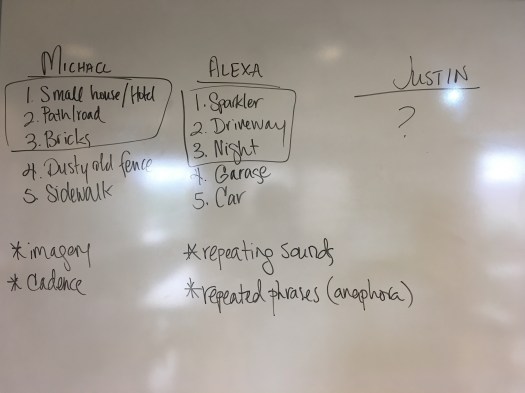 MICHAEL
1. Small house/Hotel
2. Path/road
3. Bricks
4. Dusty old fence
5. Sidewalk
* imagery
* Cadence
ALEXA
1. Sparkler
2. Driveway
3. Night
4. Garage
5. Car
* repeating sounds
* repeated phrases (anaphora)
JUSTIN
?